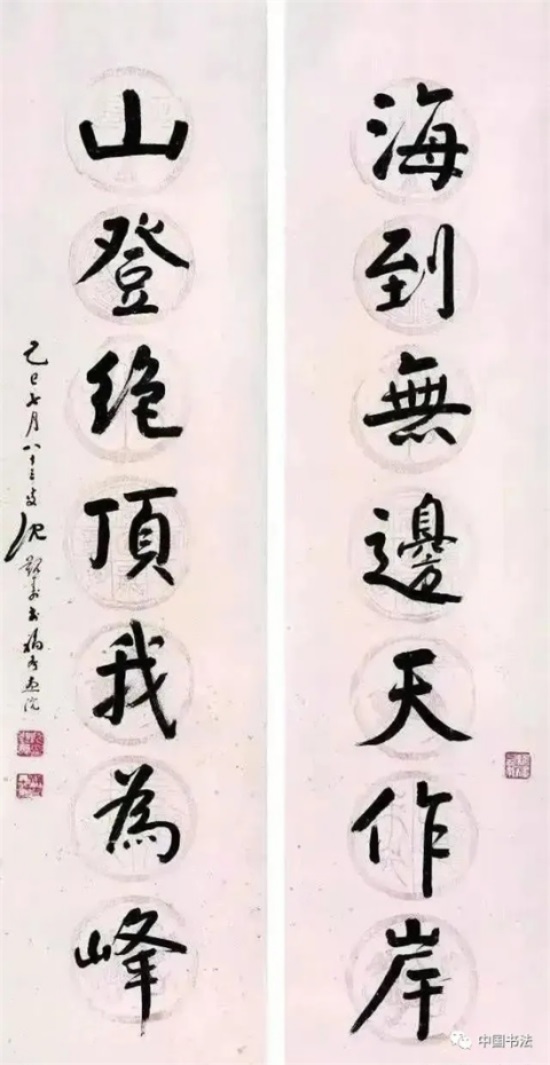 海到無邊天作岸
山登絶頂我為峰
己巳七月八十三叟沈覲壽书
中国书法